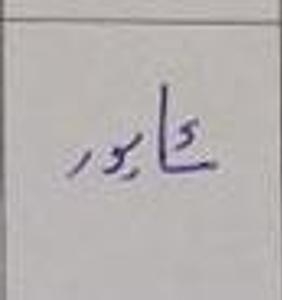 شاپور